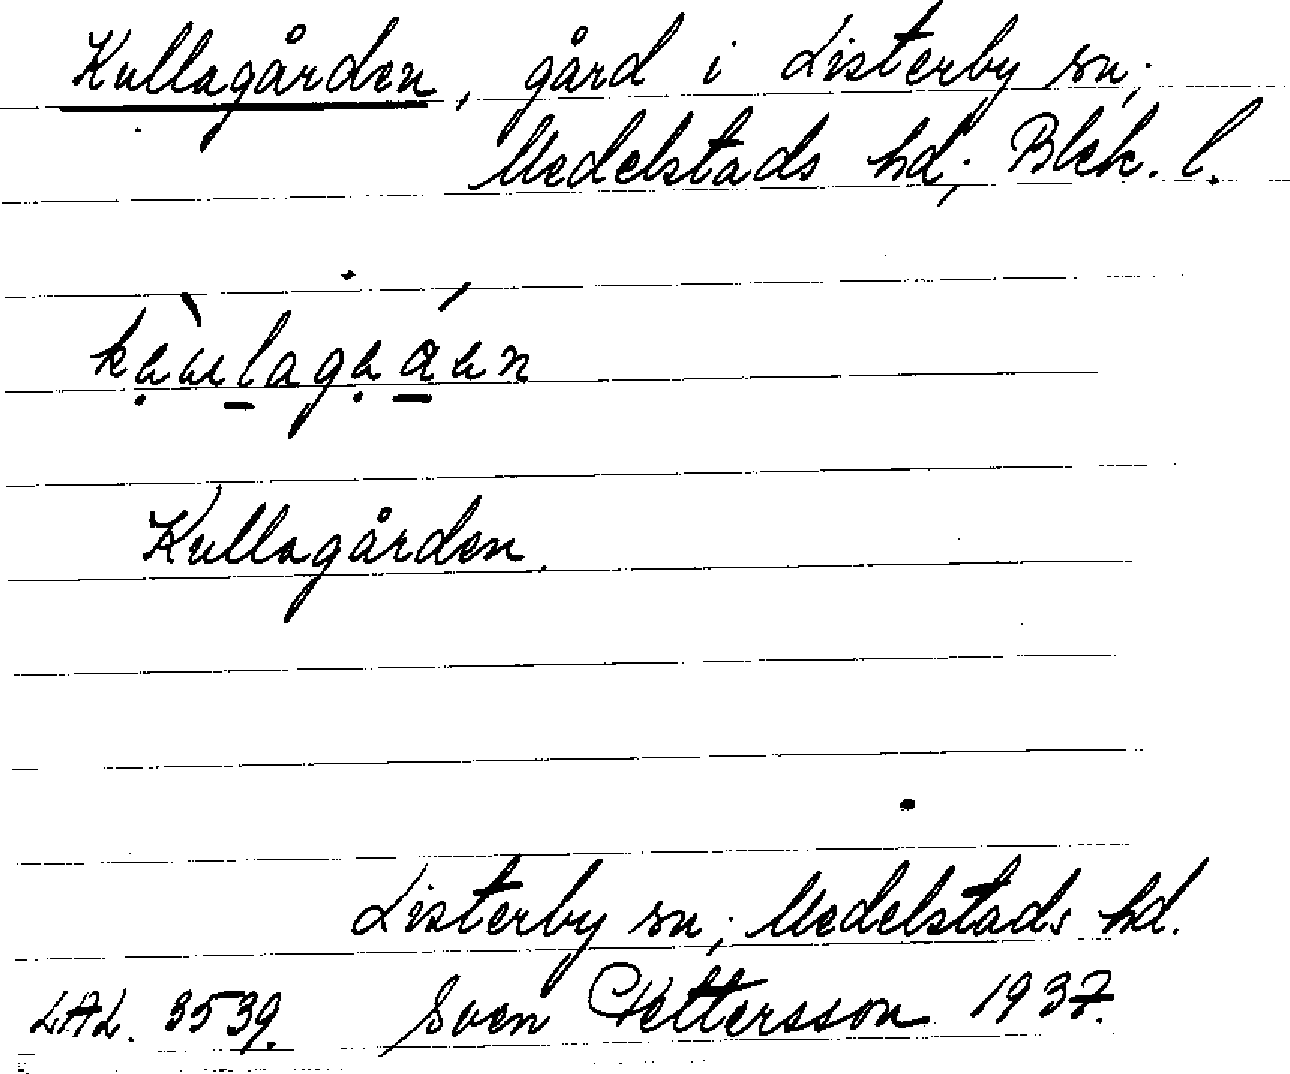 Kullagården, gård i Listerby sn;
Medelstads hd; Blek. l.
Kullagården.
Listerby sn; Medelstads hd.
LAL. 3539. Sven Pettersson 1937.